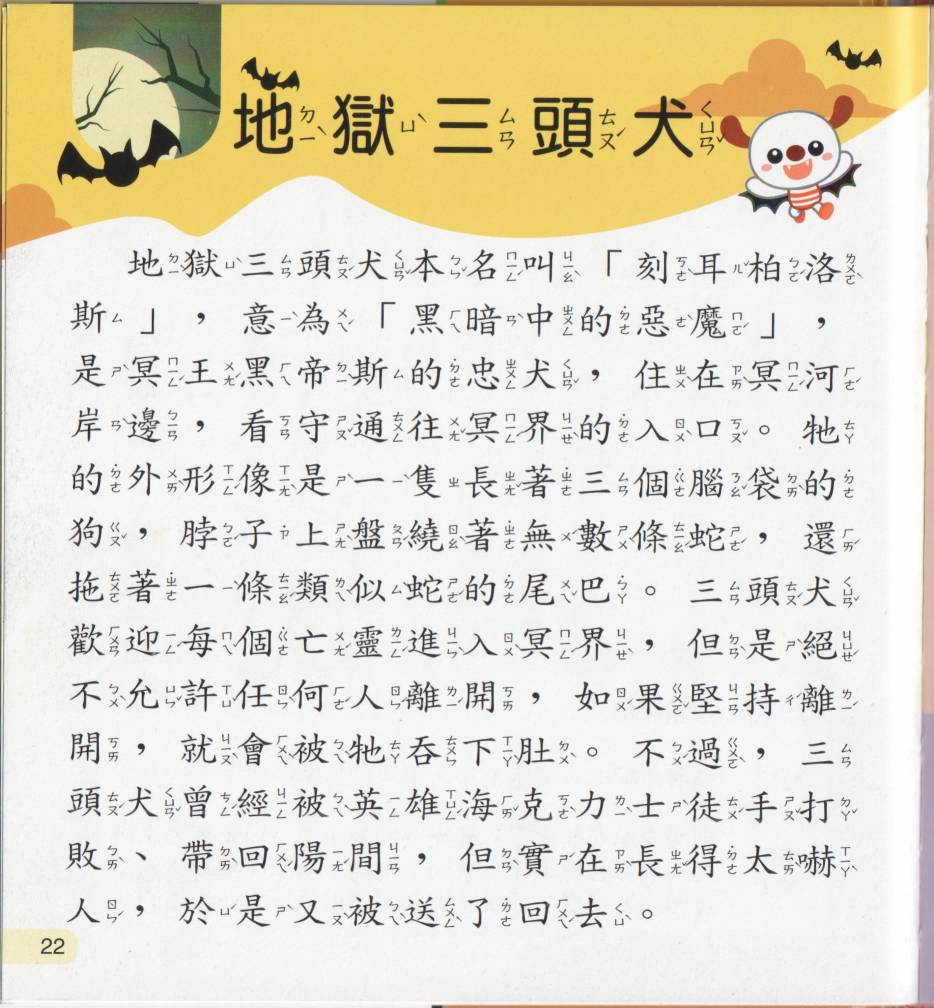 地獄三頭犬
地獄三頭犬本名叫「刻耳柏洛
斯」，意為「黑暗中的惡魔」，
是冥王黑帝斯的忠犬，住在冥河
岸邊，看守通往冥界的入口。牠
的外形像是一隻長著三個腦袋的
狗，脖子上盤繞著無數條蛇，還
拖著一條類似蛇的尾巴。三頭犬
歡迎每個亡靈進入冥界，但是絕
不允許任何人離開，如果堅持離
開，就會被牠吞下肚。不過，三
頭犬曾經被英雄海克力士徒手打
敗、帶回陽間，但實在長得太嚇
人，於是又被送了回去。
22